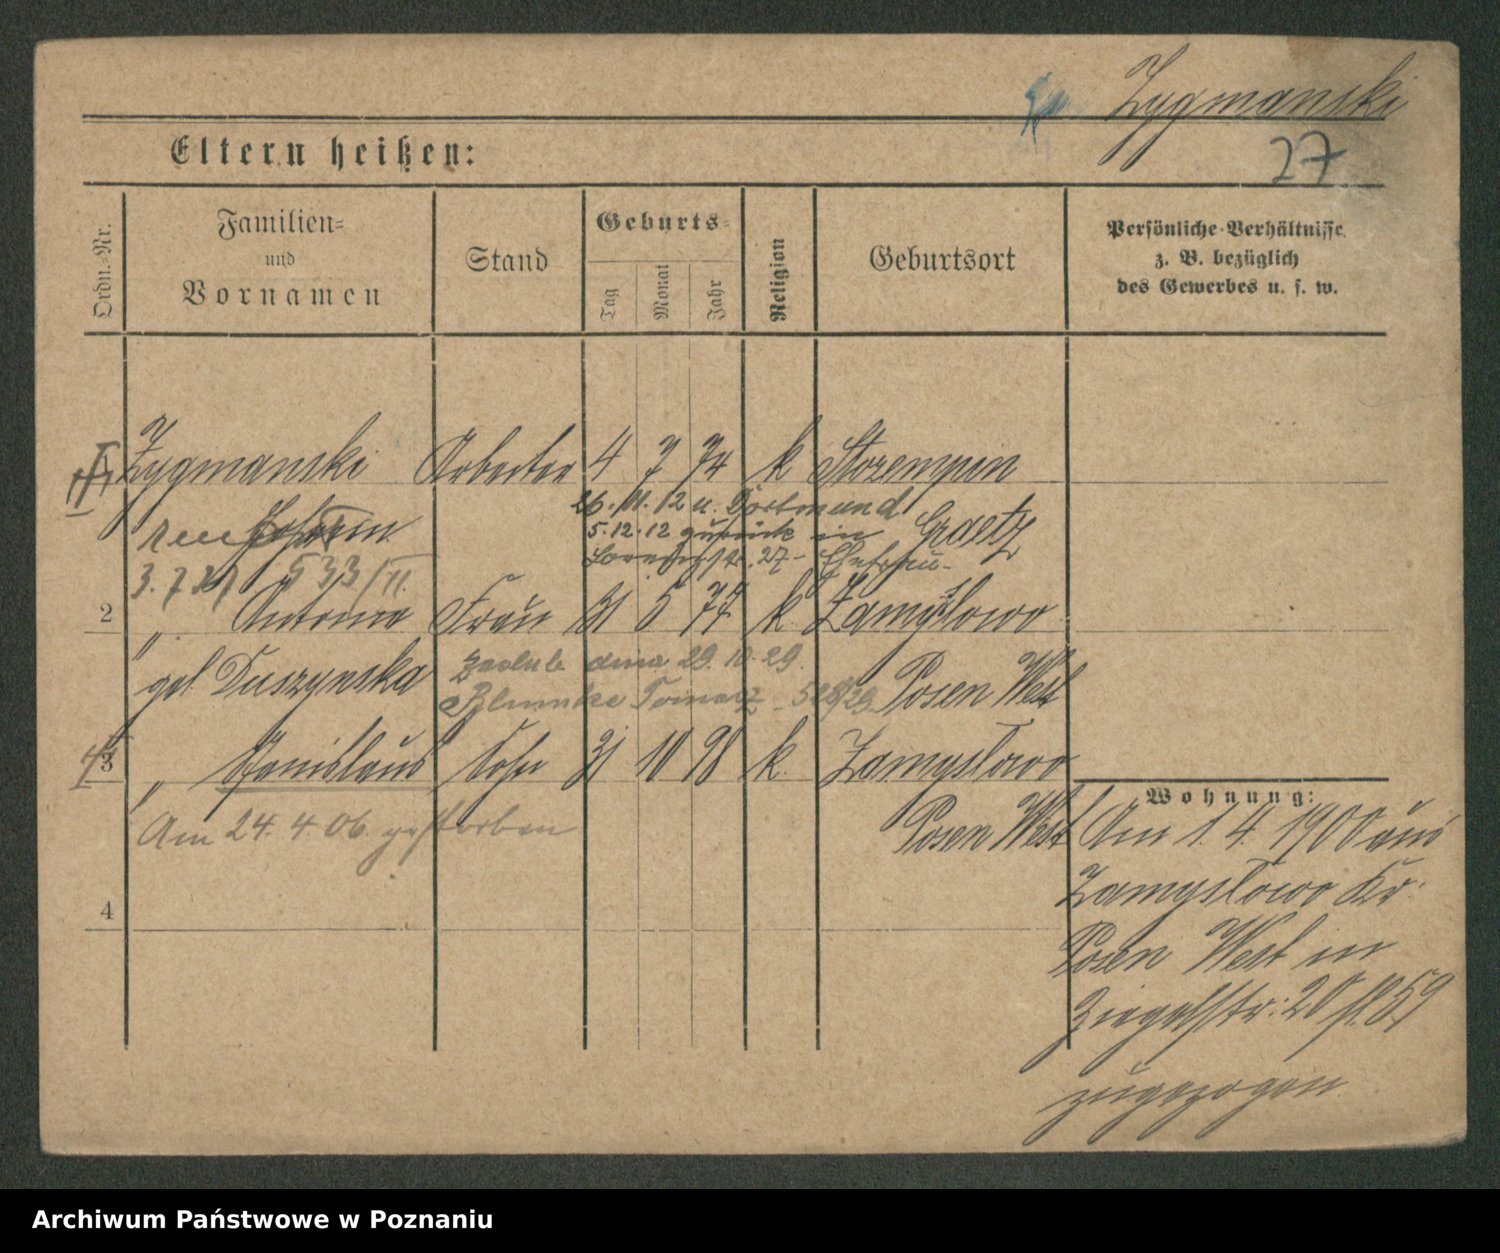 Zygmanski
27
Eltern heißen:
Ordn.-Nr.
Familien-
und
Vornamen
Stand
Geburts-
Tag
Monat
Jahr
Religion
Geburtsort
Persönliche Verhältnisse
z. B. bezüglich
des Gewerbes u. s. w.
Zygmanski Arbeiter 4 7 74 k
26. 11. 12 u. Dortmund
5. 12. 12 zurück in Graetz
27 - Ehefrau -
3. 7 533/II
2 " Antonina Frau 31 5 77 k Zamyslowo
gel. Duszynska
dnia 29. 10. 29.
Posen West
3 " Stanislaus Sohn 31 10 98 k. Zamyslowo
Am 24. 4. 06. gestorben
Posen West
4
Wohnung:
Am 1. 4. 1900 aus
Zamyslowo Kr.
Posen West in
Ziegelstr: 20 59
zugezogen.
Archiwum Państwowe w Poznaniu